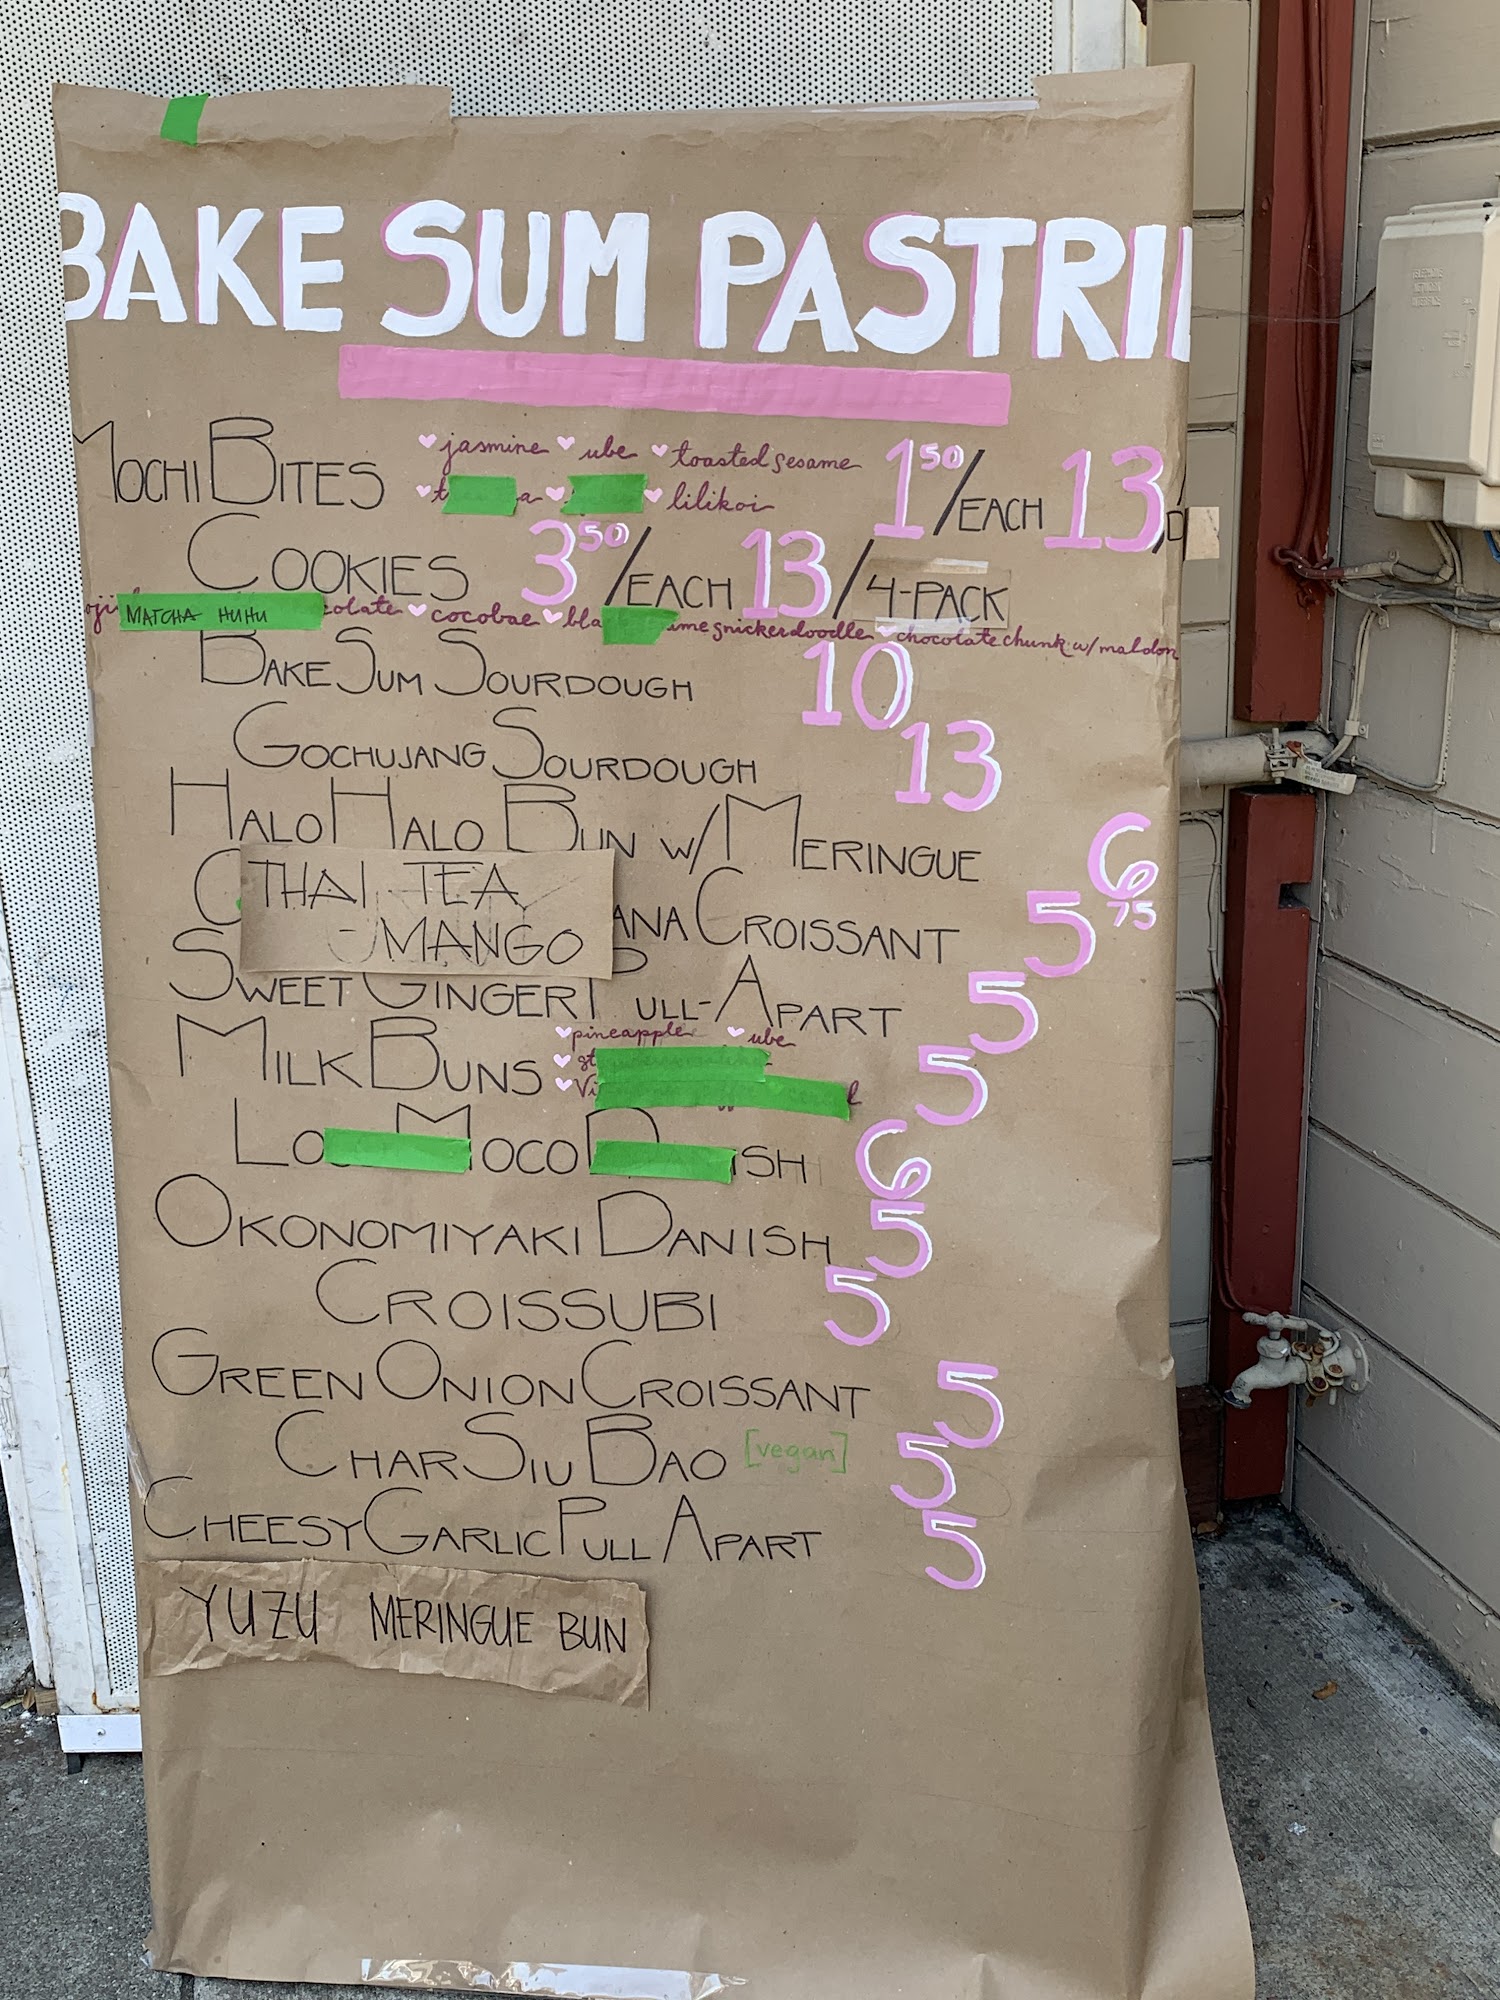 BAKE SUM PASTRI
MOCHI BITES jasmine ube toasted sesame 1 50/EACH 13/D
lilikoi
COOKIES 3 50/EACH 13/4-PACK
MATCHA HUHU cocobae snickerdoodle chocolate chunk w/ maldon
BAKE SUM SOURDOUGH 10
GOCHUJANG SOURDOUGH 13
HALO HALO BUN W/ MERINGUE 6 75
THAI TEA
MANGO CROISSANT 5
SWEET GINGER PULL-APART 5
MILK BUNS pineapple ube 5
MOCO 6
OKONOMIYAKI DANISH 5
CROISSUBI 5
GREEN ONION CROISSANT 5
CHAR SIU BAO [vegan] 5
CHEESY GARLIC PULL APART 5
YUZU MERINGUE BUN